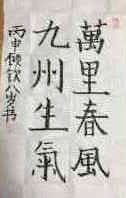 萬里春風
九州生氣
丙申 欽八歲书